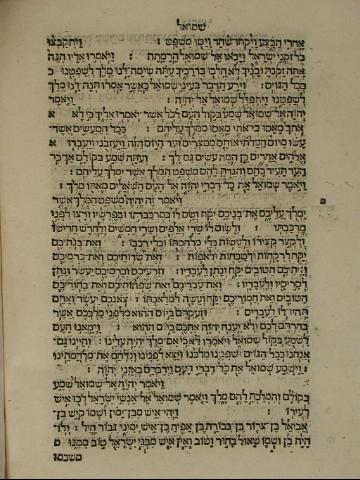 שמואל
אחרי הבצע ויקחו שחד ויטו משפט : ויתקבצו
כל זקני ישראל ויבאו אל שמואל הרמתה : ויאמרו אליו הנה
אתה זקנת ובניך לא הלכו בדרכיך עתה שימה לנו מלך לשפטנו
ככל הגוים : וירע הדבר בעיני שמואל כאשר אמרו תנה לנו מלך
לשפטנו ויתפלל שמואל אל יהוה : ויאמר
יהוה אל שמואל שמע בקול העם לכל אשר יאמרו אליך כי לא
אתך מאסו כי אתי מאסו ממלך עליהם : ככל המעשים אשר
עשו מיום העלתי אותם ממצרים ועד היום הזה ויעזבני ויעבדו
אלהים אחרים כן המה עשים גם לך : ועתה שמע בקולם אך כי
העד תעיד בהם והגדת להם משפט המלך אשר ימלך עליהם :
ויאמר שמואל את כל דברי יהוה אל העם השאלים מאתו מלך :
ויאמר זה יהיה משפט המלך אשר
ימלך עליכם את בניכם יקח ושם לו במרכבתו ובפרשיו ורצו לפני
מרכבתו : ולשום לו שרי אלפים ושרי חמשים ולחרש חרישו
ולקצר קצירו ולעשות כלי מלחמתו וכלי רכבו : ואת בנתיכם
יקח לרקחות ולטבחות ולאפות : ואת שדותיכם ואת כרמיכם
וזיתיכם הטובים יקח ונתן לעבדיו : וזרעיכם וכרמיכם יעשר ונתן
לסריסיו ולעבדיו : ואת עבדיכם ואת שפחותיכם ואת בחוריכם
הטובים ואת חמוריכם יקח ועשה למלאכתו : צאנכם יעשר ואתם
תהיו לו לעבדים : וזעקתם ביום ההוא מלפני מלככם אשר
בחרתם לכם ולא יענה יהוה אתכם ביום ההוא : וימאנו העם
לשמע בקול שמואל ויאמרו לא כי אם מלך יהיה עלינו : והיינו גם
אנחנו ככל הגוים ושפטנו מלכנו ויצא לפנינו ונלחם את מלחמתינו
וישמע שמואל את כל דברי העם וידברם באזני יהוה :
ויאמר יהוה אל שמואל שמע
בקולם והמלכת להם מלך ויאמר שמואל אל אנשי ישראל לכו איש
לעירו : ויהי איש מבן ימין ושמו קיש בן
אביאל בן צרור בן בכורת בן אפיח בן איש ימיני גבור חיל : ולו
היה בן ושמו שאול בחור וטוב ואין איש מבני ישראל טוב ממנו
משכמו